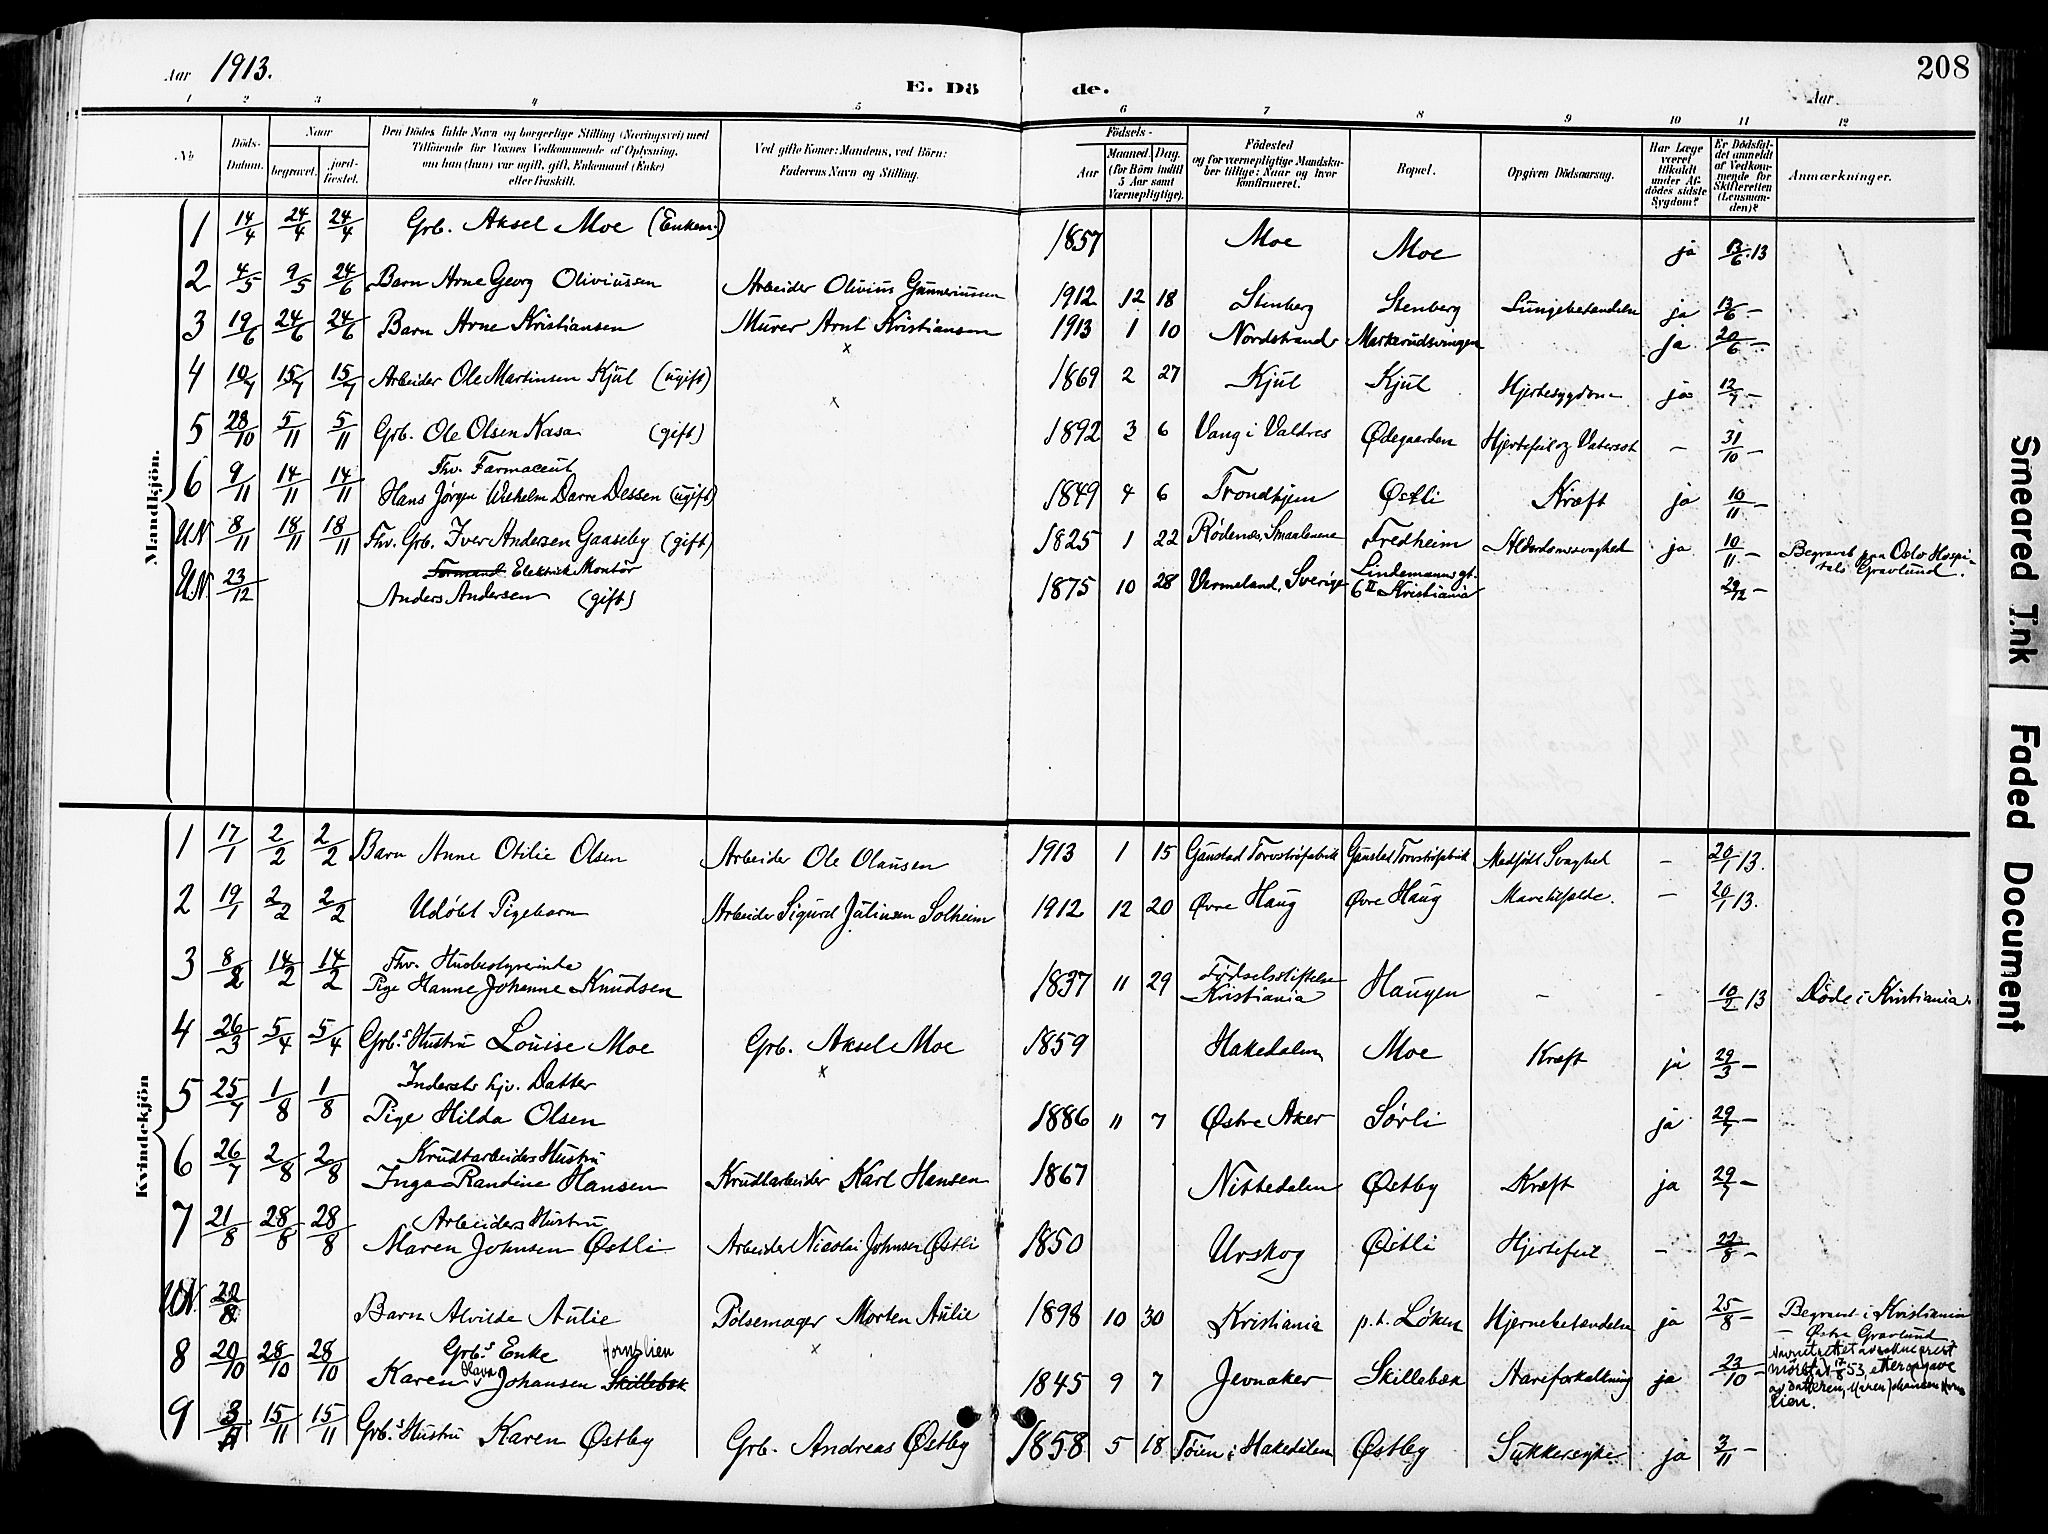 208
Aar 1913.
E. Dö de.
Aar
1 2 3 4 5 6 7 8 9 10 11 12
No
Döds-Datum.
Naar
begravet.
jord-fæstet.
Den Dödes fulde Navn og borgerlige Stilling (Næringsvei) med
Tilföiende for Voxnes Vedkommende af Oplysning,
om han (hun) var ugift, gift, Enkemand (Enke)
eller fraskilt.
Ved gifte Koner: Mandens, ved Börn:
Faderens Navn og Stilling.
Födsels-
Aar
Maaned. Dag.
(for Börn indtil
5 Aar samt
Værnepligtige).
Födested
og for værnepligtige Mandska-
ber tillige: Naar og hvor
konfirmeret.
Bopæl.
Opgiven Dödsaarsag.
Har Læge
været
tilkaldt
under Af-
dødes sidste
Sygdom?
Er Dödsfal-
det anmeldt
af Vedkom-
mende for
Skifteretten
(Lensman-
den)?
Anmærkninger.
Mandkjön.
1 14/4 24/4 24/4 Grb. Aksel Moe (Enkem.) 1857 Moe Moe ja 13/6 13
2 4/5 9/5 24/6 Barn Arne Georg Oliviussen Arbeider Olivius Gunneriussen 1912 12 18 Stenberg Stenberg Lungebetændelse ja 13/6 –
3 19/6 24/6 24/6 Barn Arne Kristiansen Murer Arnt Kristiansen x 1913 1 10 Nordstrand Markerudsvingen ja 20/6 –
4 10/7 15/7 15/7 Arbeider Ole Martinsen Kjul (ugift) x 1869 2 27 Kjul Kjul Hjertesygdom ja 12/7 –
5 28/10 5/11 5/11 Grb. Ole Olsen Kasa (gift) 1892 3 6 Vang i Valdres Ødegaarden Hjertefeil og Vatersot – 31/10 –
Fhv. Farmaceut
6 9/11 14/11 14/11 Hans Jørgen Wilhelm Darre Dessen (ugift) 1849 4 6 Trondhjem Østli Kræft ja 10/11 –
UN 8/11 18/11 18/11 Fhv. Grb. Iver Andersen Gaaseby (gift) 1825 1 22 Rødenæs, Smaalenene Fredheim Alderdomssvaghed ja 10/11 – Begravet paa Oslo Hospi-
tals Gravlund.
Formand Elektrisk Montør
UN. 23/12 Anders Andersen (gift) 1875 10 28 Vermeland, Sverige Lindemannsgt.
6 II Kristiania 29/12 –
Kvindekjön
1 17/1 2/2 2/2 Barn Anne Otilie Olsen Arbeider Ole Olausen 1913 1 15 Gaustad Torvstrøfabrik Gaustad Torvstrøfabrik Medfødt Svaghed – 20/1 13.
2 19/1 2/2 2/2 Udøbt Pigebarn Arbeider Sigurd Juliusen Solheim 1912 12 20 Øvre Haug Øvre Haug Mavetilfælde. – 20/1 13.
Fhv. Husbestyrerinde
3 8/2 14/2 14/2 Pige Hanne Johanne Knudsen 1837 11 29 Fødselsstiftelsen
Kristiania Haugen – – 10/2 13 Døde i Kristiania.
4 26/3 5/4 5/4 Grbs Hustru Louise Moe Grb. Aksel Moe x 1859 Hakedalen Moe Kræft ja 29/3 –
Inderst hjv. Datter
5 25/7 1/8 1/8 Pige Hilda Olsen 1886 11 7 Østre Aker Sørli ja 29/7 –
Krudtarbeiders Hustru
6 26/7 2/8 2/8 Inga Randine Hansen Krudtarbeider Karl Hansen 1867 Nittedalen Østby Kræft ja 29/7 –
Arbeiders Hustru
7 21/8 28/8 28/8 Maren Johnsen Østli Arbeider Nicolai Johnsen Østli 1850 Urskog Østli Hjertefeil – 22/8 –
UN. 22/8 Barn Alvilde Aulie Pølsemager Morten Aulie x 1898 10 30 Kristiania p.t. Løken Hjernebetændelse ja 25/8 – Begravet i Kristiania
– Østre Gravlund
Grbs Enke Hornslien
8 20/10 28/10 28/10 Karen Johansen Skillebæk 1845 9 7 Jevnaker Skillebæk Aareforkalkning ja 23/10 – Navnet rettet av sogneprest
53, etter opgave
av datteren, Maren Johansen Horns
lien.
9 3/11 15/11 15/11 Grbs Hustru Karen Østby Grb. Andreas Østby 1858 5 18 Tøien i Hakedalen Østby Sukkersyke ja 3/11 –
Smeared Ink
Faded Document